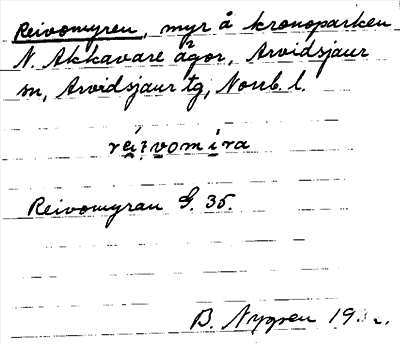 Reivomyren, myr å kronoparken
N. Akkavare ägor, Arvidsjaur
sn, Arvidsjaur tg, Norrb. l.
reivomira
Reivomyran G. 35.
B. Nygren